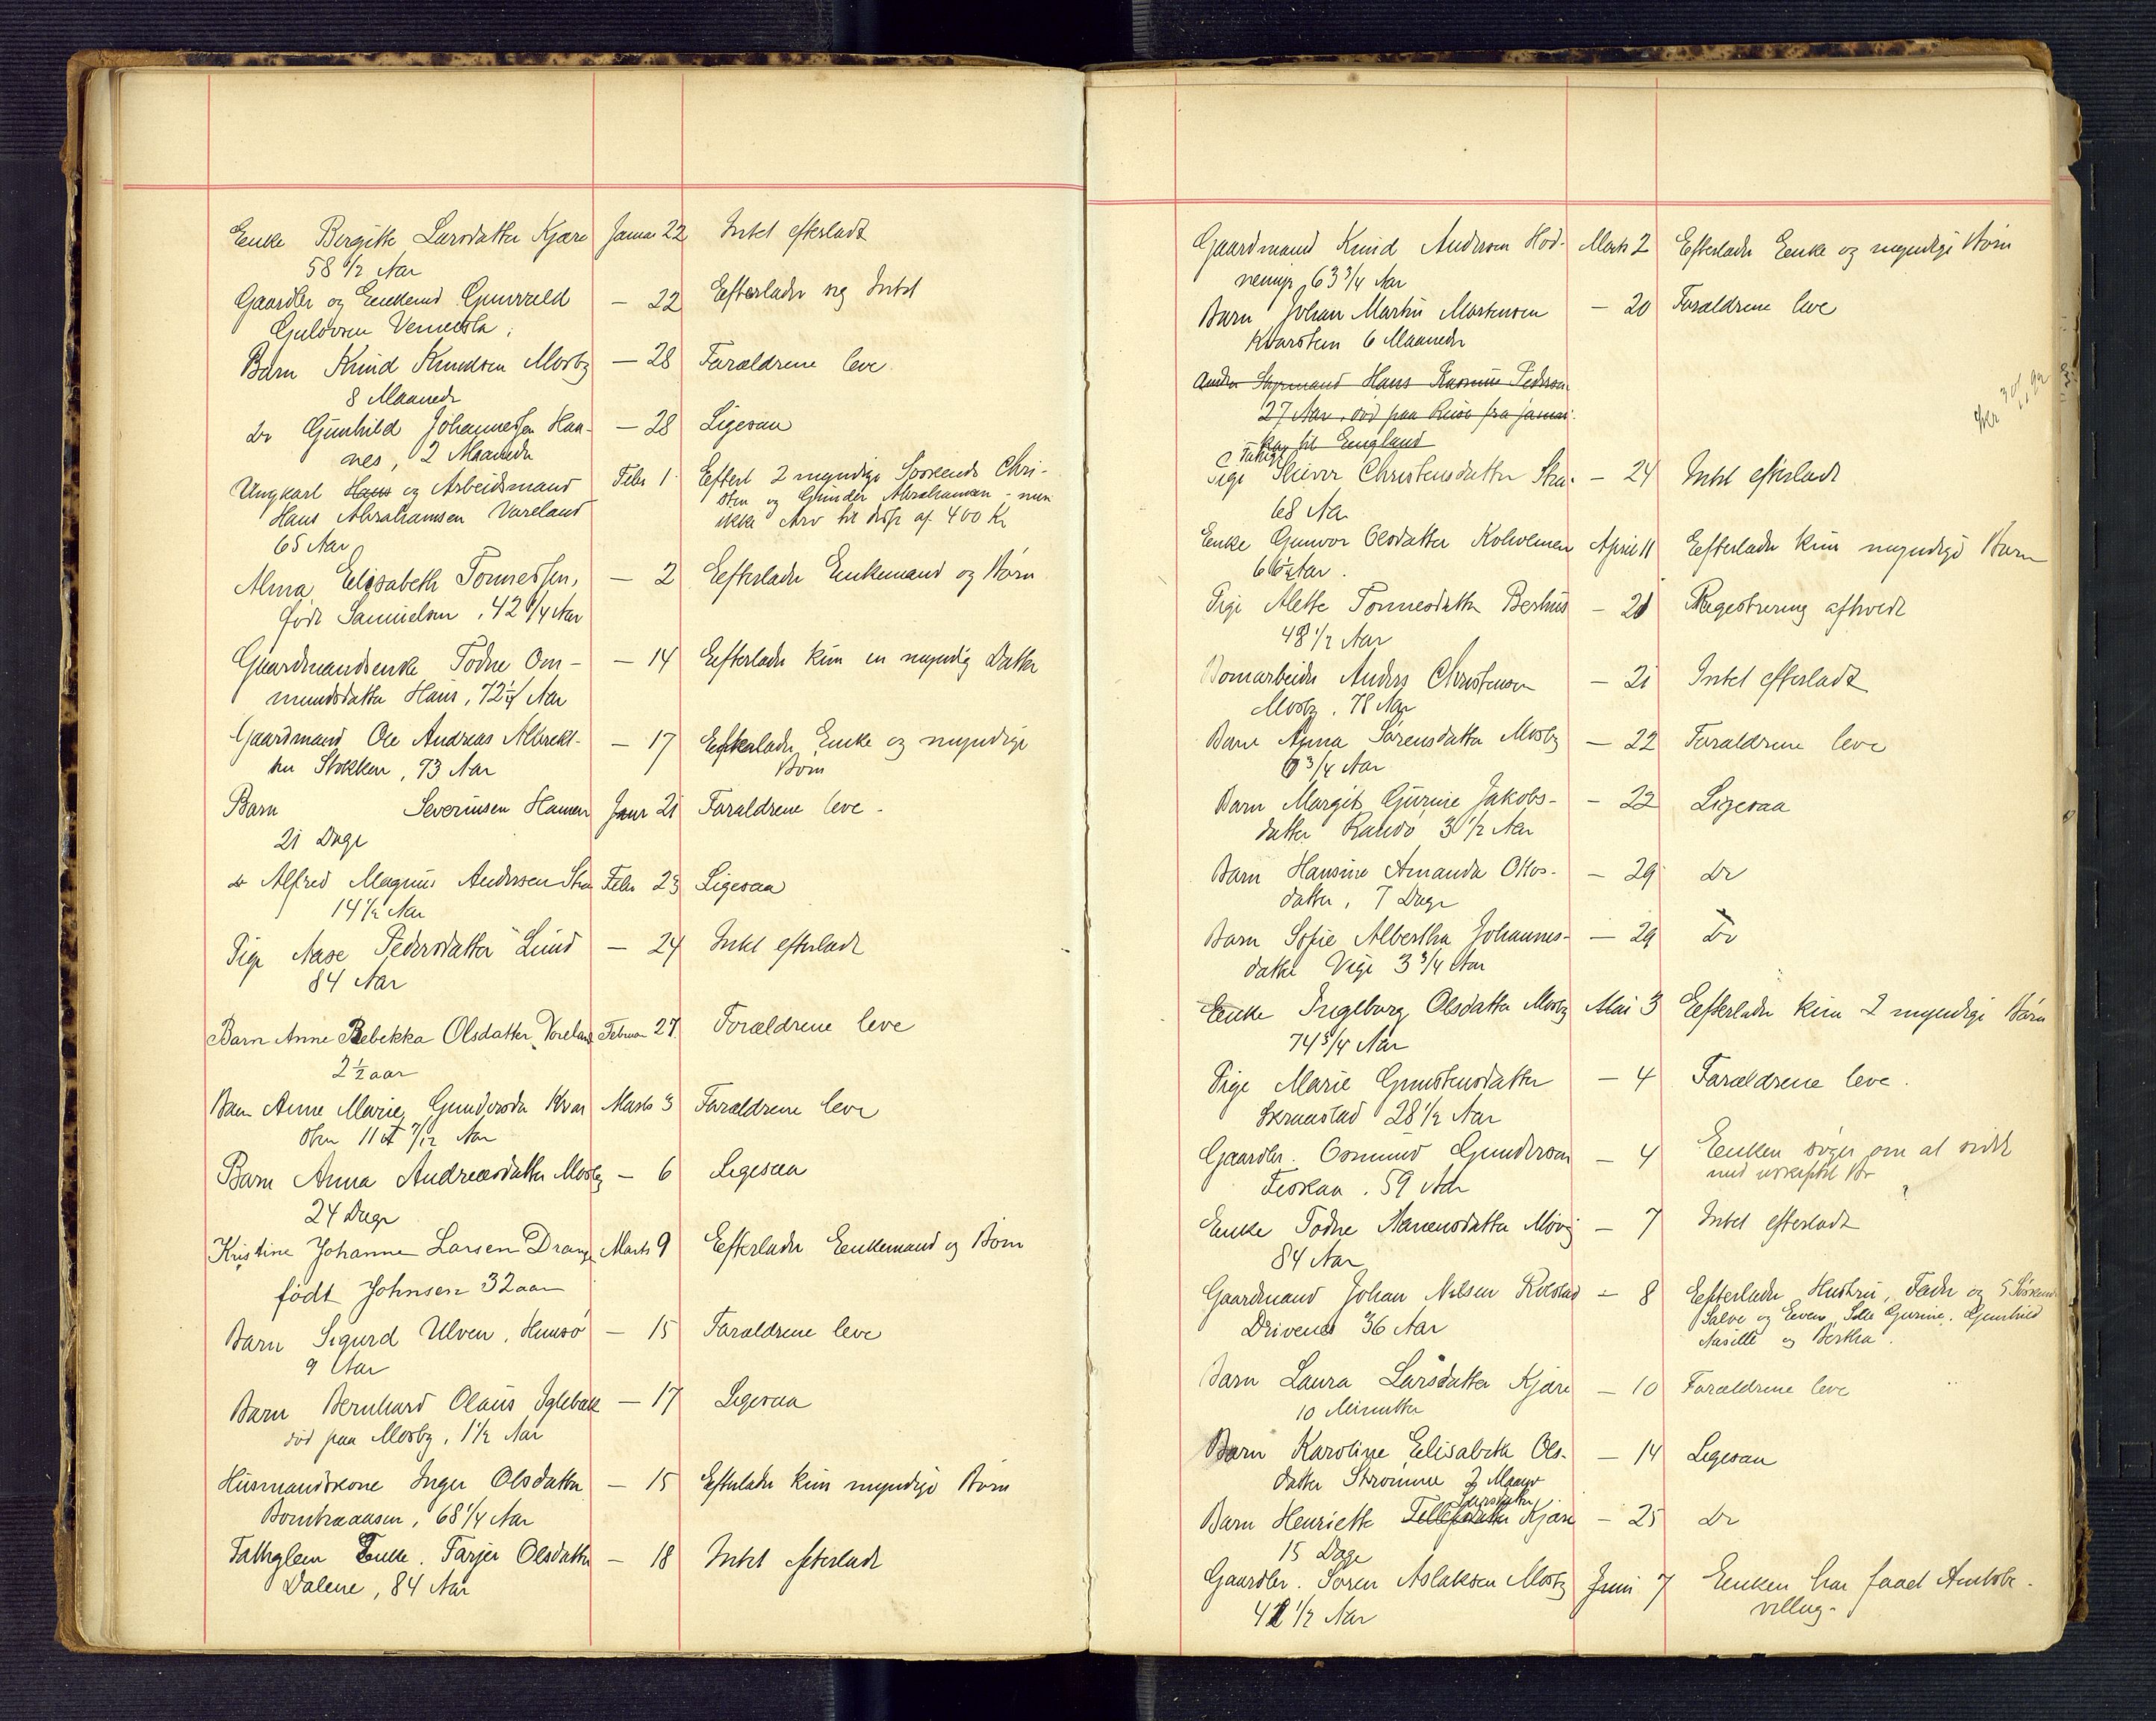 Enke Bergitte Larsdatter Kjære Januar 22 Intet efterladt
58 1/2 Aar
Gaardbr og Enkemd Gunvald — 22 Efterlader sig Intet
Gulovsen Vennesla.
Barn Knud Knudsen Mosby — 28 Forældrene leve
8 Maaneder
do Gunhild Johannessen Haa- — 28 Ligesaa
nes, 2 Maaneder
Ungkarl Hans og Arbeidsmand Febr 1 Efterl 2 myndige Søskende Chri-
Hans Abrahamsen Vareland sten og Gunder Abrahamsen - men
65 Aar ikke Arv til af 400 Kr
Alma Elisabeth Tønnessen, — 2 Efterlader Enkemand og Børn
født Samuelsen, 42 1/4 Aar
Gaardmandsenke Todne Om- — 14 Efterlader kun en myndig Datter
mundsdatter Haus, 72 1/4 Aar
Gaardmand Ole Andreas Albrekt- — 17 Efterlader Enke og myndige
sen Stokken, 73 Aar Børn
Barn Severinsen Hamen Janr 21 Forældrene leve -
21 Dage
do Alfred Magnus Andersen Stra Febr 23 Ligesaa
14 1/2 Aar
Pige Aase Pedersdatter Lund — 24 Intet efterladt
84 Aar
Barn Anne Rebekka Olsdatter Voreland Februar 27. Forældrene leve
2 1/2 aar
Barn Anne Marie Gundersdr Kvar Marts 3 Forældrene leve
sten 11 7/12 Aar
Barn Anna Andreasdatter Mosby — 6 Ligesaa
24 Dage
Kristine Johanne Larsen Drange Marts 9 Efterlader Enkemand og Børn
født Johnsen 32 aar
Barn Sigurd Ulven, Hunsø — 15 Forældrene leve
9 Aar
Barn Bernhard Olaus Iglebæk — 17 Ligesaa
død paa Mosby, 1 1/2 Aar
Husmandskone Inger Olsdatter — 15 Efterlader kun myndige Børn
Bomtraaasen, 68 1/4 Aar
Fattiglem Enke. Tarjer Olsdatter — 18 Intet efterladt
Dalene, 84 Aar
Gaardmand Knud Andersen Hod- Marts 2 Efterlader Enke og myndige Børn
nemyr, 63 3/4 Aar
Barn Johan Martin Mortensen — 20 Forældrene leve
Kvarsten 6 Maaneder
Anden Styrmand Hans Rasmus Pedersen
27 Aar, død paa Reise fra Jamai-
ka til England
Pige Christensdatter Stra: — 24 Intet efterladt
68 Aar
Enke Gunvor Olsdatter Kolholmen April 11 Efterlader kun myndige Børn
66 1/2 Aar.
Pige Alette Tønnesdatter Beshus — 21 Registrering afholdt
48 1/2 Aar
Bomarbeider Anders Christensen — 21 Intet efterladt
Mosby. 78 Aar
Barn Anna Sørensdatter Mosby — 22 Forældrene leve
6 3/4 Aar
Barn Margit Gurine Jakobs- — 22 Ligesaa
datter Randø 3 1/2 Aar
Barn Hansine Amanda Ottos- — 29 do
datter, 7 Dage
Barn Sofie Albertha Johannes- — 29 do
datter Vige 3 3/4 Aar
Enke Ingeborg Olsdatter Mosby Mai 3 Efterlader kun 2 myndige Børn
74 3/4 Aar
Pige Marie Gunstensdatter — 4 Forældrene leve.
28 1/2 Aar
Gaardbr. Osmund Gundersen — 4 Enken søger om at sidde
Fiskaa. 59 Aar med uskiftet Bo
Enke Todne Aanensdatter Møvig — 7 Intet efterladt
84 Aar
Gaardmand Johan Nilsen Kolstad — 8 Efterlader Hustru, Fader og 5 Søskende
Drivenes 36 Aar Salve og Even, Gurine, Gunhild
Aasille og Bertha.
Barn Laura Larsdatter Kjære — 10 Forældrene leve
10 Minutter
Barn Karoline Elisabeth Ols- — 14 Ligesaa
datter Strømme 2 Maand
Larsdatter
Barn Henriette Tellefsdatter Kjære — 25 do
15 Dage
Gaardbr. Søren Aslaksen Mosby Juni 7 Enken har faaet Amtsbe-
42 1/2 Aar villing-